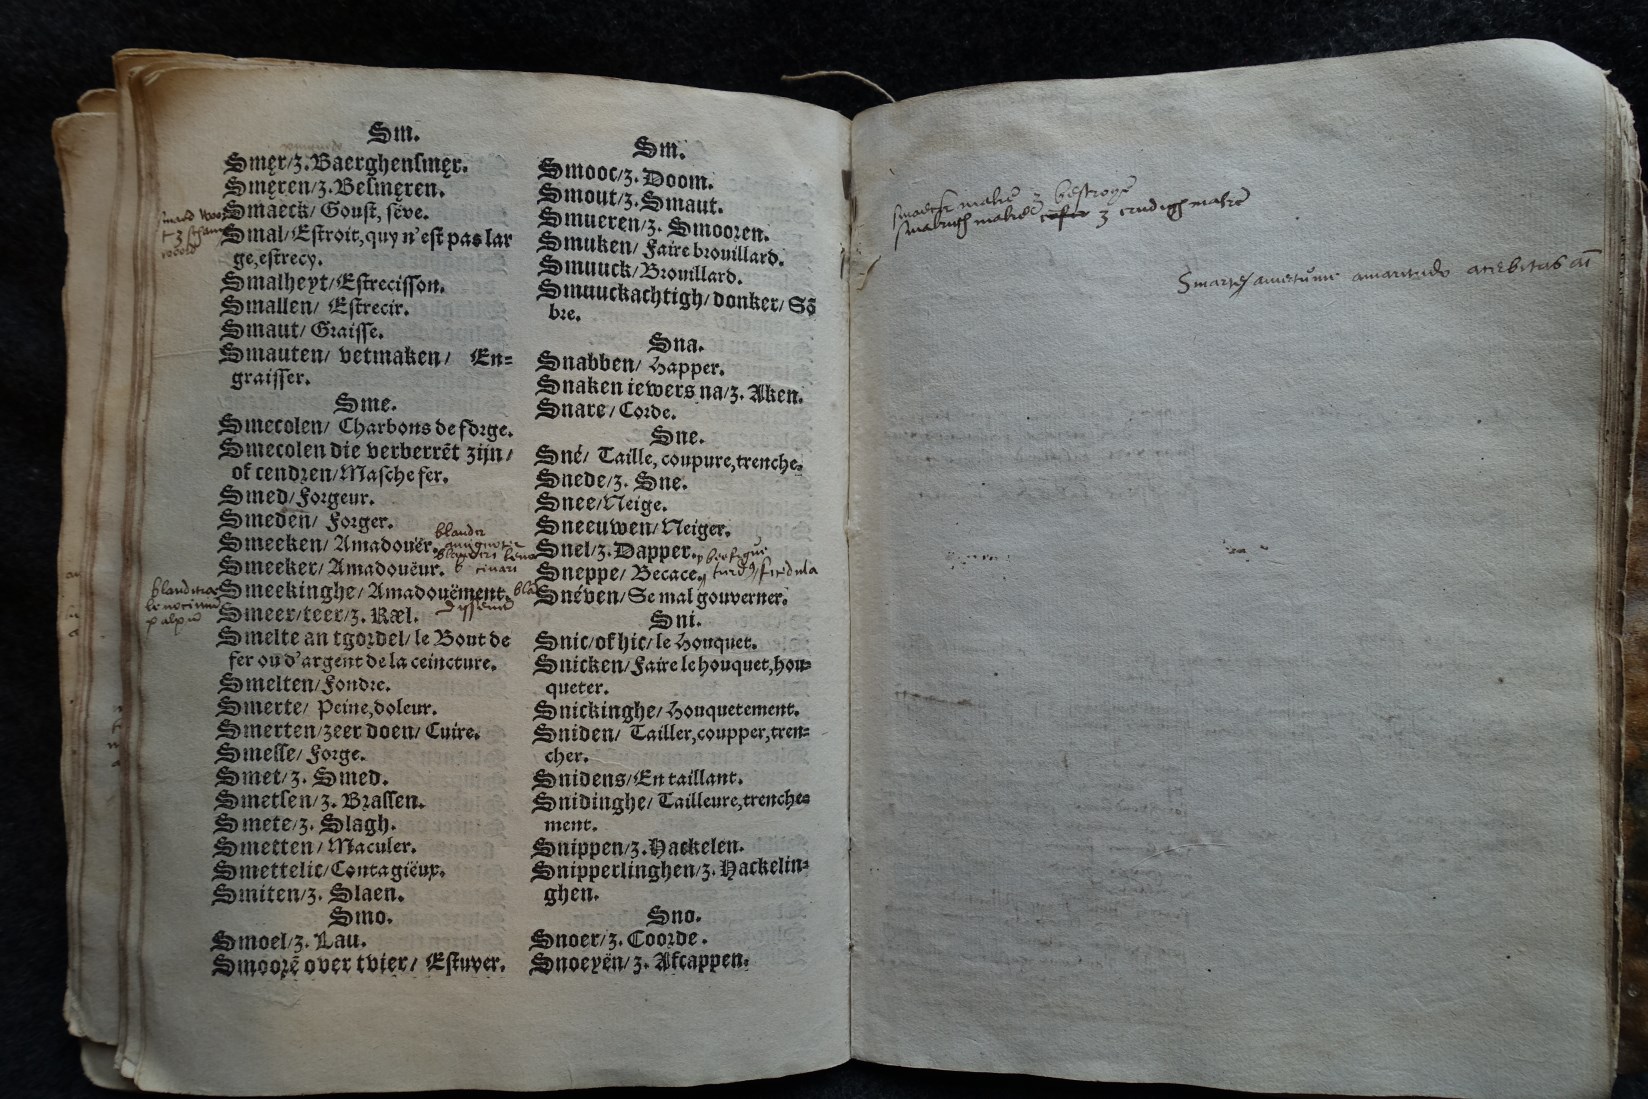 Sm.
Smęr/z. Baerghenſmęr.
Smęren/z. Beſmęren.
Smaeck/ Gouſt, ſéve.
Smal/ Eſtroit, quy n'eſt pas lar
ge, eſtrecy.
Smalheyt/ Eſtreciſſon.
Smallen/ Eſtrecir.
Smaut/ Graiſſe.
Smauten/ vetmaken/ En-
graiſſer.
Sme.
Smecolen/ Charbons de forge.
Smecolen die verberrēt zijn/
of cendren/ Maſche fer.
Smed/ Forgeur.
Smeden/ Forger.
Smeeken/ Amadouër.
Smeeker/ Amadouëur.
Smeekinghe/ Amadouëment.
Smeer/teer/z. Ræl.
Smelte an tgordel/ le Bout de
fer ou d'argent de la ceincture.
Smelten/ Fondre.
Smerte/ Peine, doleur.
Smerten/zeer doen/ Cuire.
Smeſſe/ Forge.
Smet/z. Smed.
Smetſen/z. Braſſen.
Smete/z. Slagh.
Smetten/ Maculer.
Smettelic/ Contagiëux.
Smiten/z. Slaen.
Smo.
Smoel/z. Lau.
Smoorē over tvier/ Eſtuver.
Sm.
Smooc/z. Doom.
Smout/z. Smaut.
Smueren/z. Smooren.
Smuken/ Faire brouillard.
Smuuck/ Brouillard.
Smuuckachtigh/ donker/ Sō
bre.
Sna.
Snabben/ Happer.
Snaken iewers na/z. Aken.
Snare/ Corde.
Sne.
Sné/ Taille, coupure, trenche.
Snede/z. Sne.
Snee/ Neige.
Sneeuwen/ Neiger.
Snel/z. Dapper.
Sneppe/ Becace.
Snéven/ Se mal gouverner.
Sni.
Snic/of hic/ le Houquet.
Snicken/ Faire le houquet, hou-
queter.
Snickinghe/ Houquetement.
Sniden/ Tailler, coupper, tren-
cher.
Snidens/ En taillant.
Snidinghe/ Tailleure, trenche-
ment.
Snippen/z. Hackelen.
Snipperlinghen/z. Hackelin-
ghen.
Sno.
Snoer/z. Coorde.
Snoeyën/z. Afcappen.
blander
amaritudo